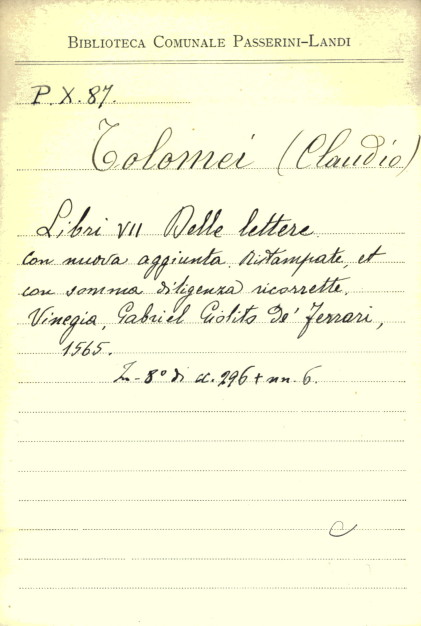 BIBLIOTECA COMUNALE PASSERINI-LANDI
P.X.87.
Tolomei (Claudio)
Libri VII Delle lettere
con nuova aggiunta ristampate, et
con somma diligenza ricorrette.
Vinegia, Gabriel Giolito De' Ferrari,
1565.
In-8° di cc. 296 + nn. 6.
C